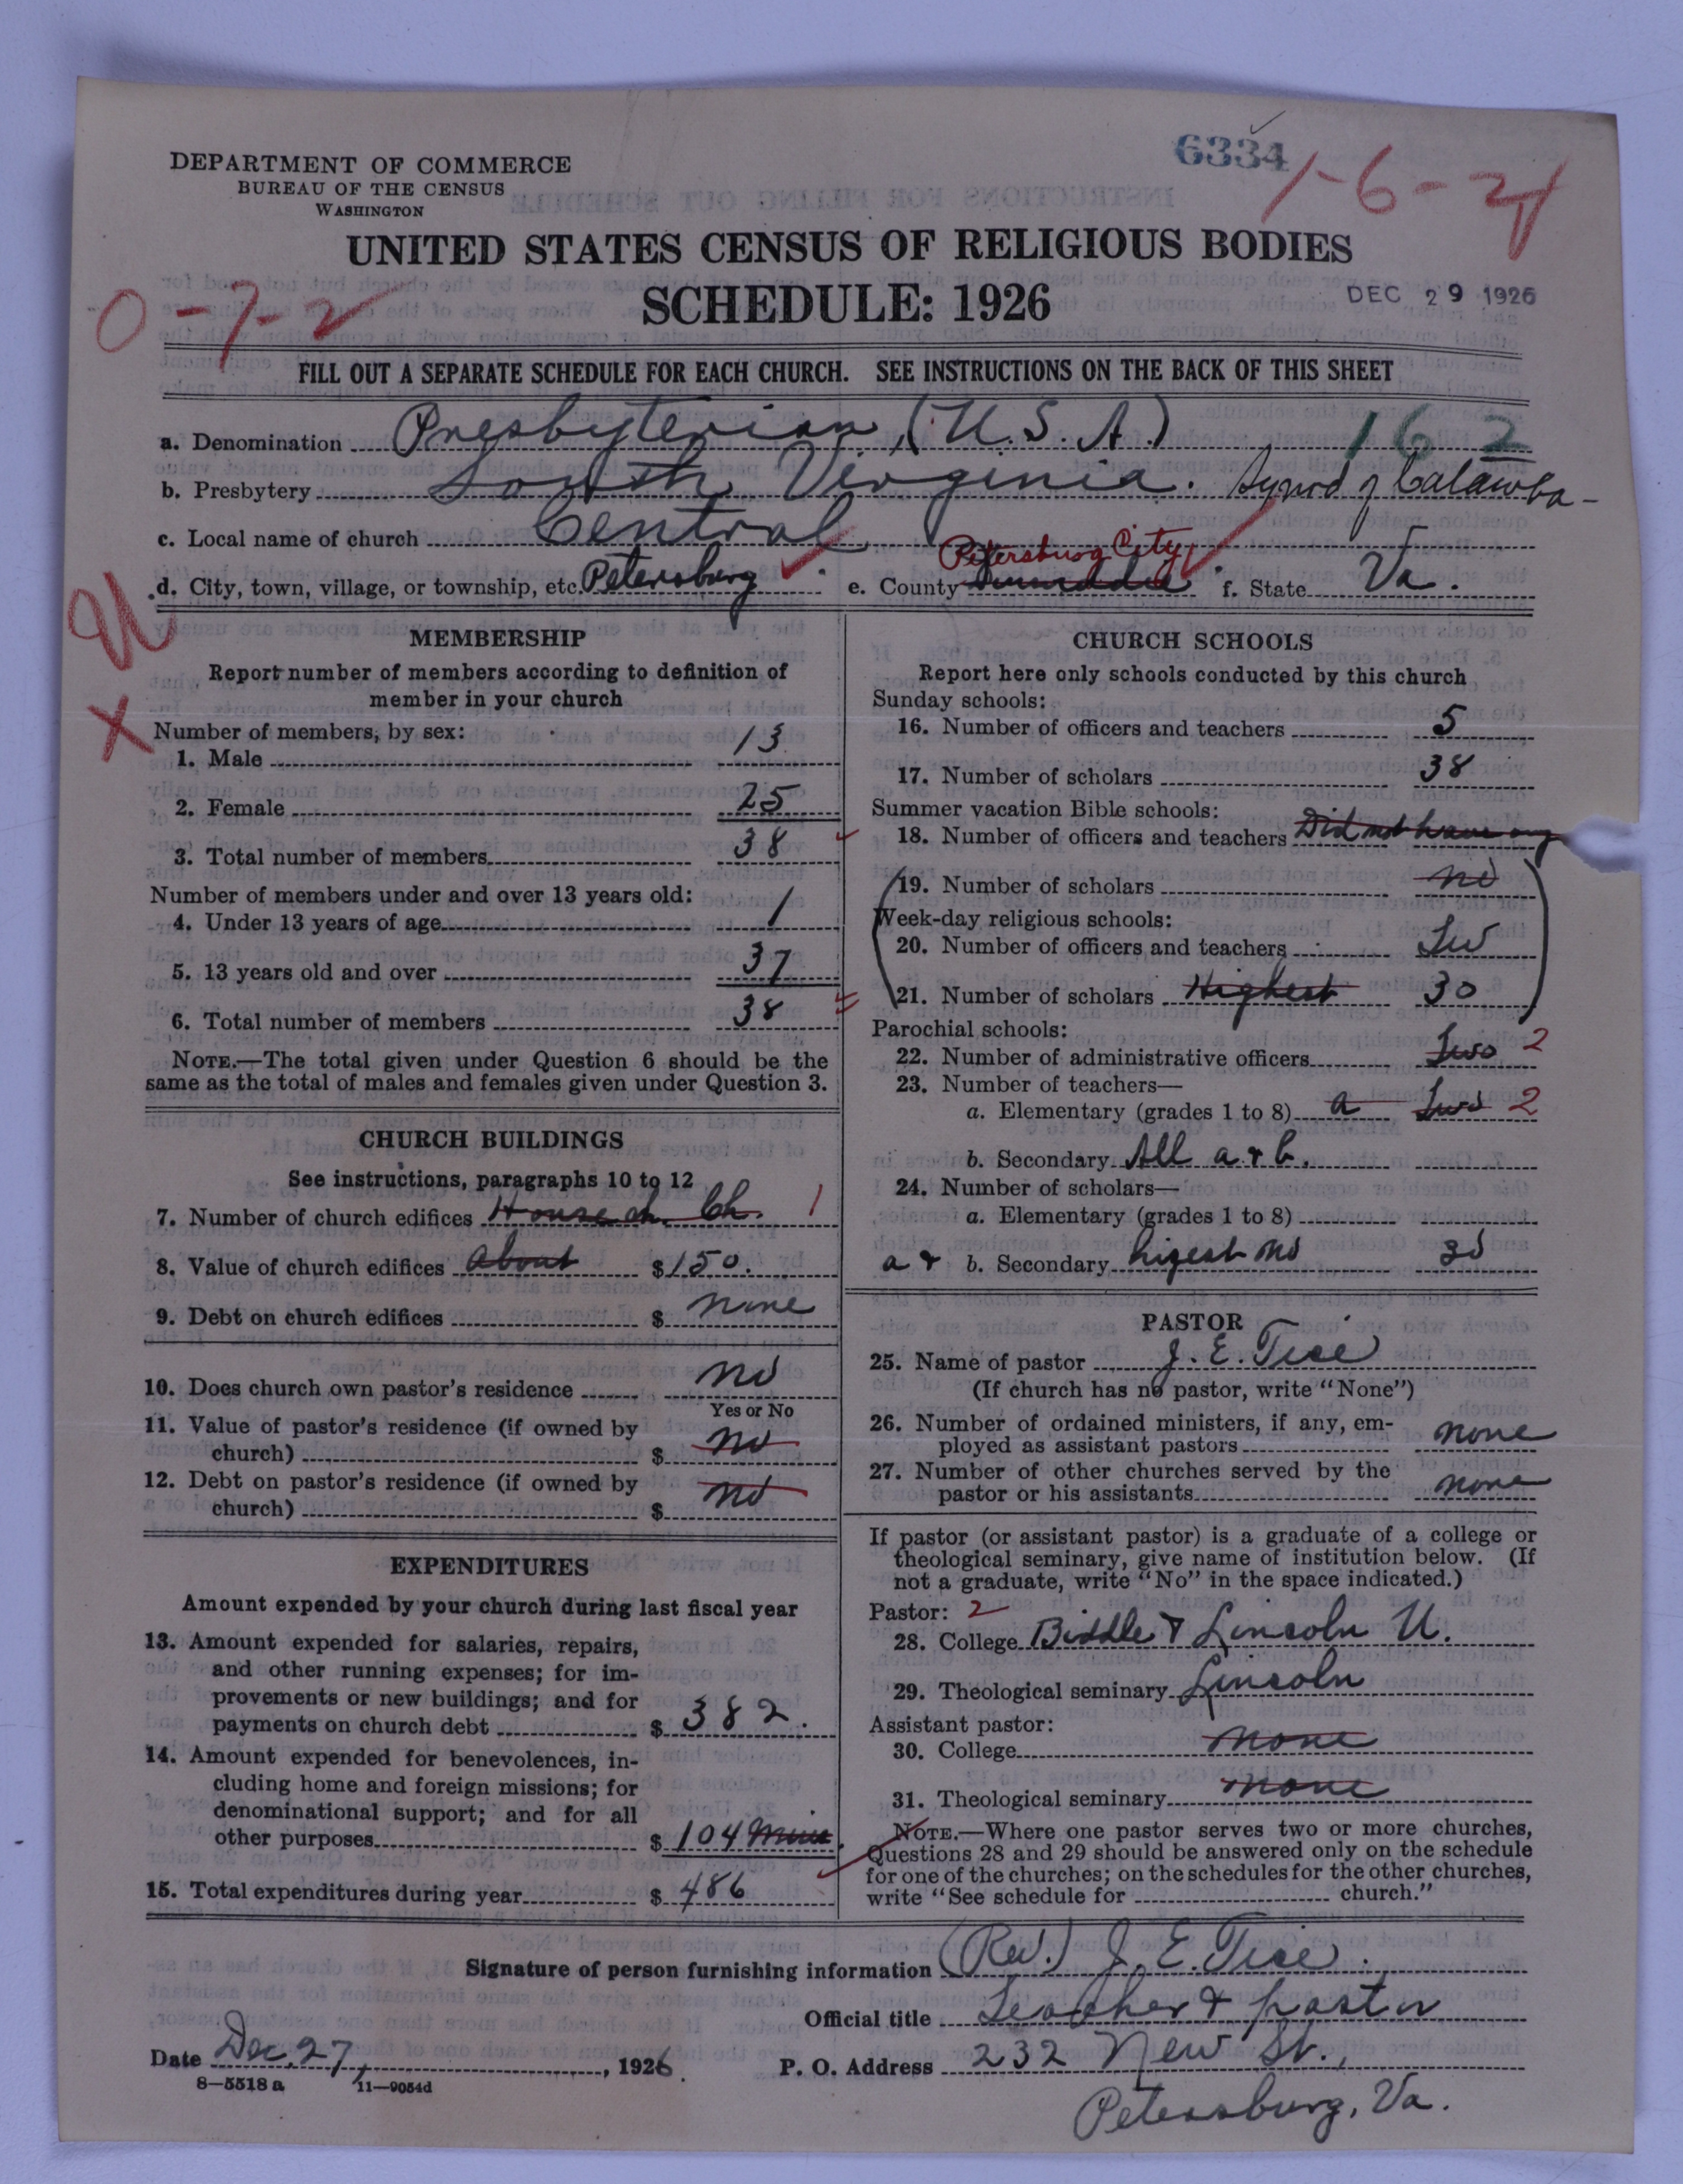 6334
1-6-24
DEPARTMENT OF COMMERCE
BUREAU OF THE CENSUS
WASHINGTON
UNITED STATES CENSUS OF RELIGIOUS BODIES
SCHEDULE: 1926
DEC 29 1926
0-7-2
FILL OUT A SEPARATE SCHEDULE FOR EACH CHURCH. SEE INSTRUCTIONS ON THE BACK OF THIS SHEET
a. Denomination Presbyterian, (U.S.A.) 162
b. Presbytery South Virginia. Synod of Catawba-
c. Local name of church Central
Petersburg City
d. City, town, village, or township, etc. Petersburg e. County f. State Va.
MEMBERSHIP
Report number of members according to definition of
member in your church
Number of members, by sex:
1. Male 13
2. Female 25
3. Total number of members 38
Number of members under and over 13 years old:
4. Under 13 years of age 1
5. 13 years old and over 37
6. Total number of members 38
NOTE.—The total given under Question 6 should be the
same as the total of males and females given under Question 3.
CHURCH BUILDINGS
See instructions, paragraphs 10 to 12
7. Number of church edifices House Ch. 1
8. Value of church edifices About $150.
9. Debt on church edifices $ none
10. Does church own pastor's residence no
Yes or No
11. Value of pastor's residence (if owned by
church) $ no
12. Debt on pastor's residence (if owned by
church) $ no
EXPENDITURES
Amount expended by your church during last fiscal year
13. Amount expended for salaries, repairs,
and other running expenses; for im-
provements or new buildings; and for
payments on church debt $ 382.
14. Amount expended for benevolences, in-
cluding home and foreign missions; for
denominational support; and for all
other purposes $ 104
15. Total expenditures during year $ 486
CHURCH SCHOOLS
Report here only schools conducted by this church
Sunday schools:
16. Number of officers and teachers 5
17. Number of scholars 38
Summer vacation Bible schools:
18. Number of officers and teachers Did not have any
19. Number of scholars no
Week-day religious schools:
20. Number of officers and teachers
21. Number of scholars Highest 30
Parochial schools:
22. Number of administrative officers Two 2
23. Number of teachers—
a. Elementary (grades 1 to 8) a Two 2
b. Secondary All a & b.
24. Number of scholars—
a. Elementary (grades 1 to 8)
a & b. Secondary higest no 30
PASTOR
25. Name of pastor J. E. Tice
(If church has no pastor, write "None")
26. Number of ordained ministers, if any, em-
ployed as assistant pastors none
27. Number of other churches served by the
pastor or his assistants none
If pastor (or assistant pastor) is a graduate of a college or
theological seminary, give name of institution below. (If
not a graduate, write "No" in the space indicated.)
Pastor: 2
28. College Biddle & Lincoln U.
29. Theological seminary Lincoln
Assistant pastor:
30. College none
31. Theological seminary none
NOTE.—Where one pastor serves two or more churches,
Questions 28 and 29 should be answered only on the schedule
for one of the churches; on the schedules for the other churches,
write "See schedule for church."
Signature of person furnishing information (Rev.) J. E. Tice.
Official title Teacher & pastor
Date Dec. 27, 1926.
P. O. Address 232 New St.,
8—5518 a 11—9054d
Petersburg, Va.